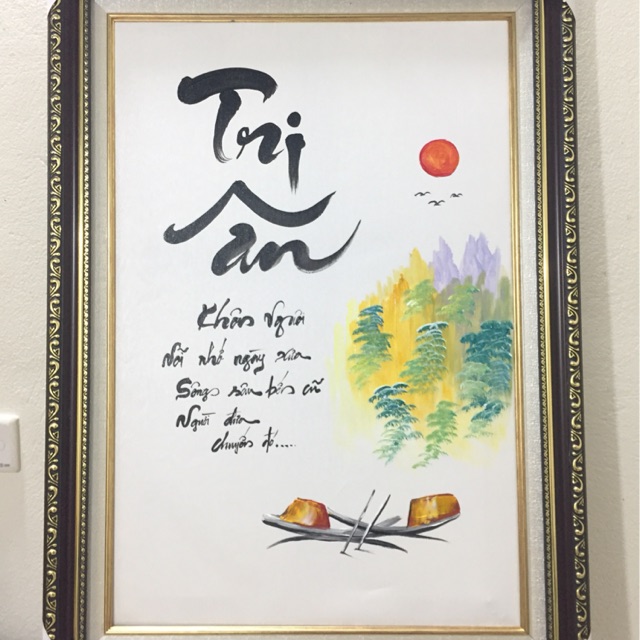 Tri
Ân
Không Nguôi
Nỗi nhớ ngày xưa
Sông sâu bến cũ
Người đưa
chuyến đò....